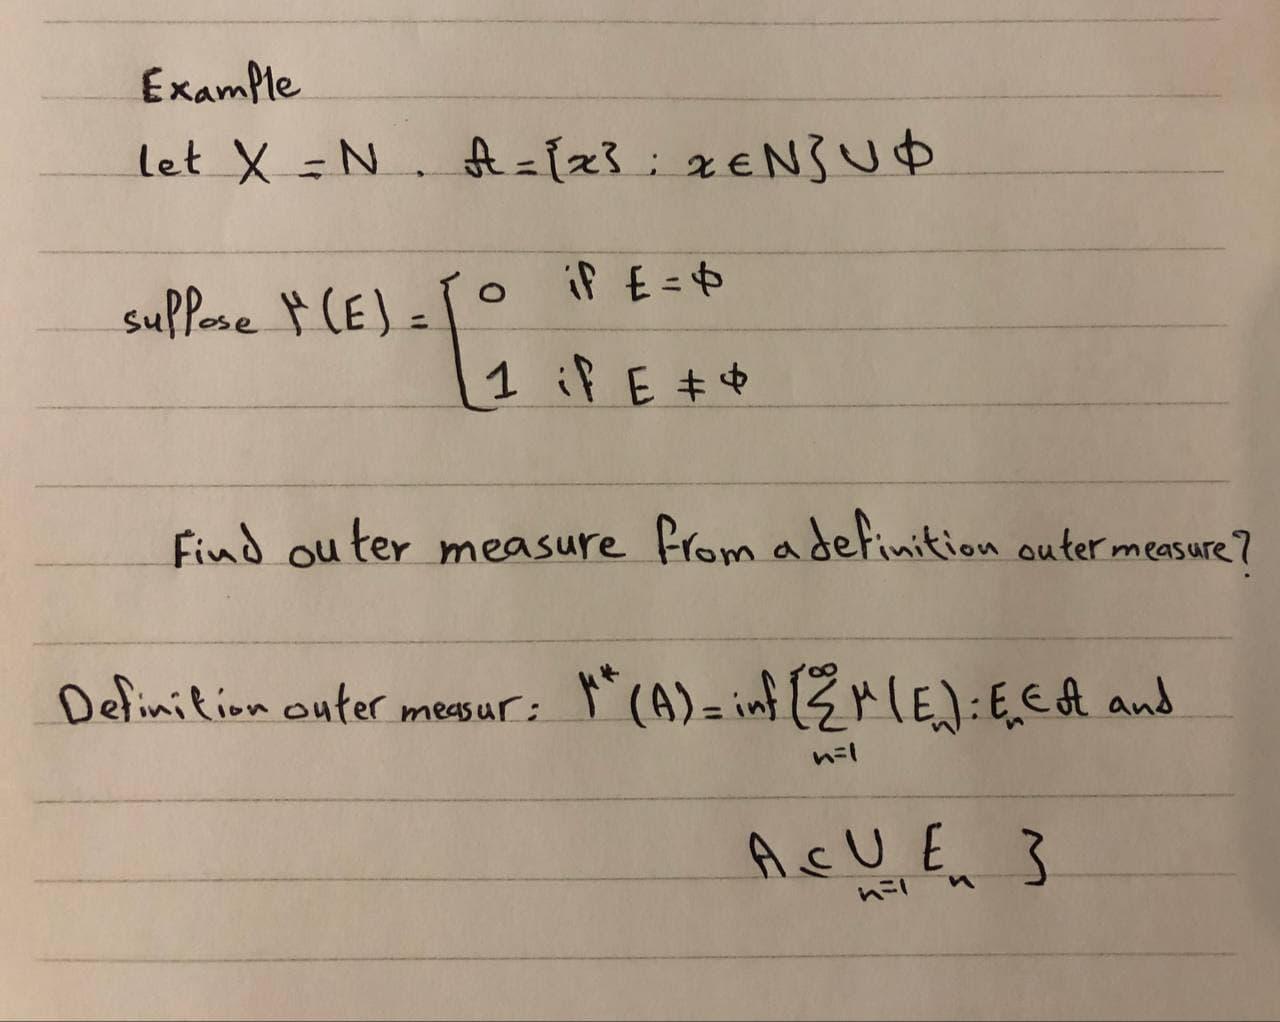 Example
let X = N . A = {x} : x ∈ N} ∪ ϕ
suppose μ(E) = [ 0 if E = ϕ
1 if E ≠ ϕ
Find outer measure from a definition outer measure?
Definition outer measur : μ*(A) = inf { ∞ Σ n=1 μ(En) : En ∈ A and
A ⊂ ∪ n=1 En }